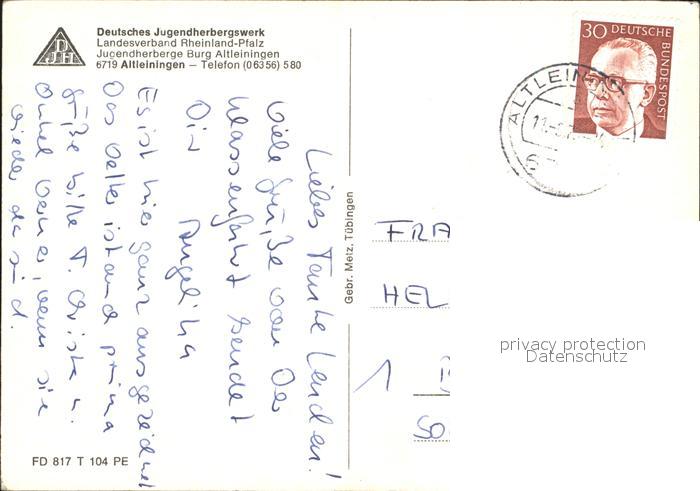 Deutsches Jugendherbergswerk
Landesverband Rheinland-Pfalz
Jugendherberge Burg Altleiningen
6719 Altleiningen – Telefon (06356) 580
DJH
Liebes Tante
Viele Grüße von der
Klassenfahrt sendet
Dir
Angelika
Es ist hier ganz ausgezeichnet
Das Wetter ist auch prima
Grüße bitte T. Christa u.
Onkel Werner, wenn sie
wieder da sind.
FD 817 T 104 PE
Gebr. Metz, Tübingen
30 DEUTSCHE BUNDESPOST
ALTLEIN
FRA
HEL
1
SO
privacy protection
Datenschutz